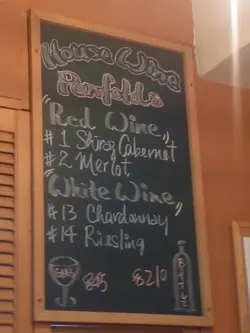 House Wine
Penfolds
"Red Wine"
#1 Shiraz Cabernet
#2 Merlot
"White Wine"
#13 Chardonnay
#14 Riesling
GLASS
BOTTLE